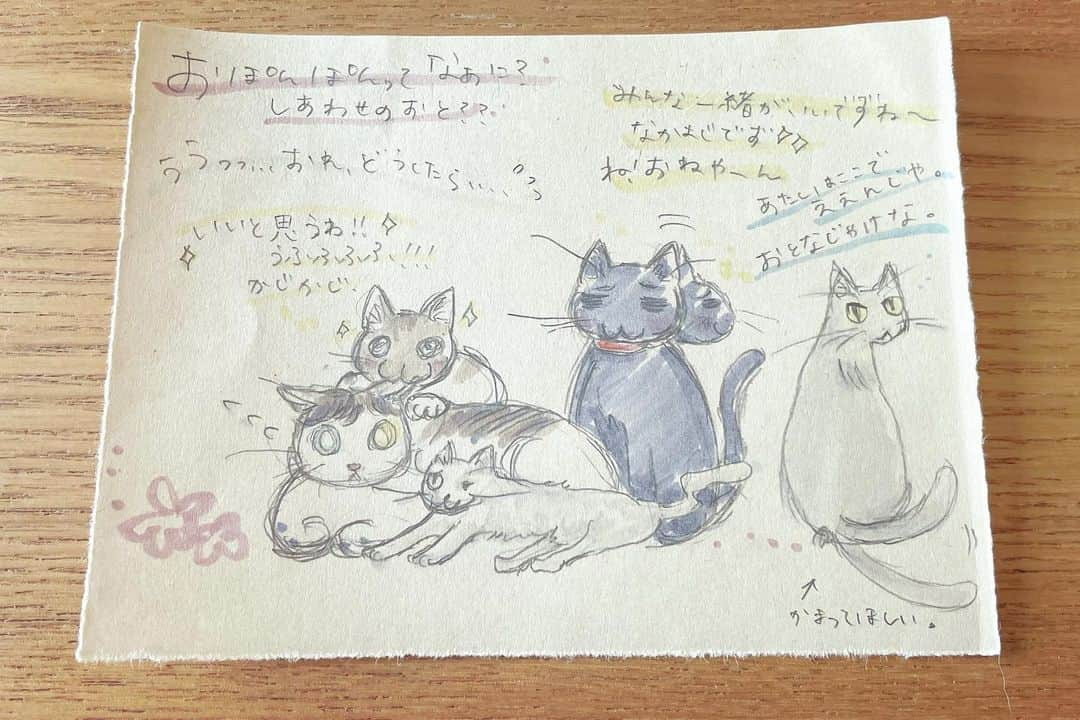 おぽんぽんってなぁに?
しあわせのおと??
ううっっ…おれ、どうしたら…、
いいと思うわ!!
うふふふふ!!!
かじかじ。
みんな一緒がいいですね〜
なかよしです
ね!おねやーん
あたしはここで
ええんじゃ。
おとなじゃけな。
かまってほしい。